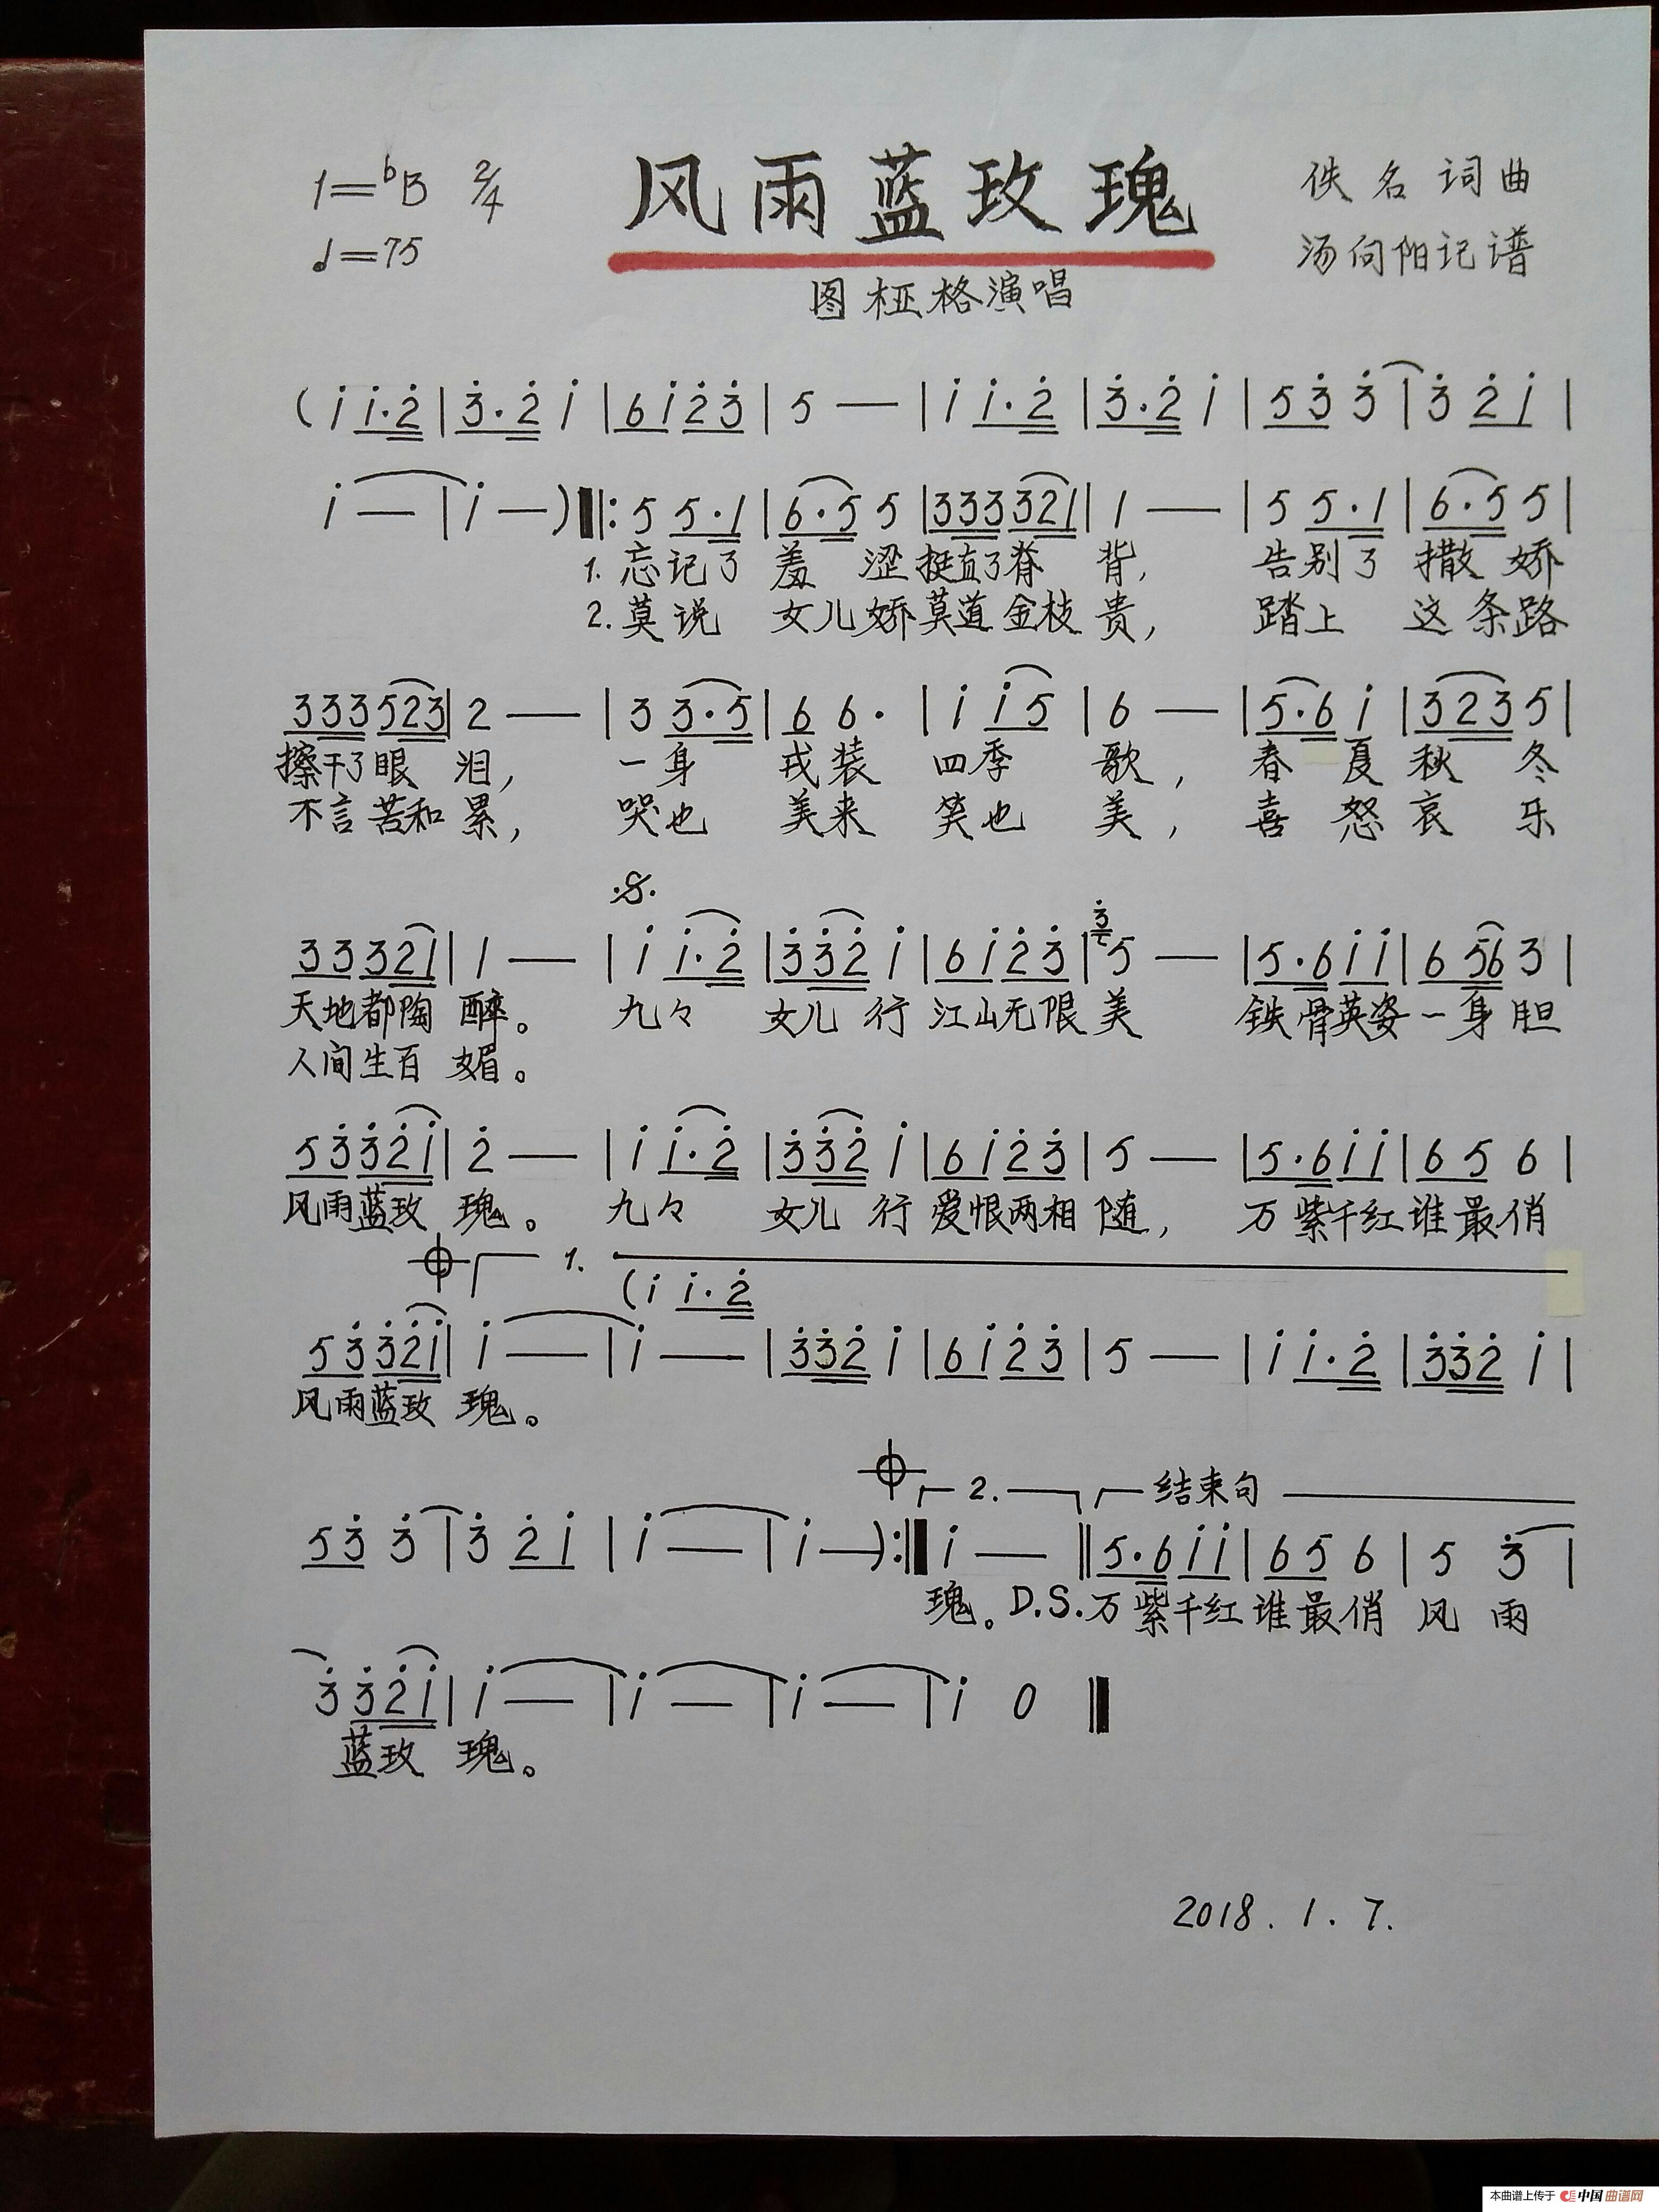 1=♭B 2/4 风雨蓝玫瑰 佚名 词曲
♩=75 汤向阳记谱
图桠格演唱
(i i·2̇ | 3̇·2̇ i | 6i2̇3̇ | 5 — | i i·2̇ | 3̇·2̇ i | 53̇ 3̇ | 3̇ 2̇i |
i — | i —)‖: 5 5·1 | 6·5 5 | 333321 | 1 — | 5 5·1 | 6·5 5 |
1. 忘记了 羞 涩挺直了脊 背, 告别了 撒 娇
2. 莫说 女儿娇莫道金枝贵, 踏上 这条路
333523 | 2 — | 3 3·5 | 6 6· | i i5 | 6 — | 5·6 i | 323 5 |
擦干了眼 泪, 一身 戎装 四季 歌, 春 夏 秋 冬
不言苦和 累, 哭也 美来 笑也 美, 喜 怒 哀 乐
𝄋
33321 | 1 — | i i·2̇ | 3̇3̇2̇ i | 6i2̇3̇ | 3̇5 — | 5·6ii | 656 3 |
天地都陶 醉。 九々 女儿 行 江山无限 美 铁骨英姿一身胆
人间生百 媚。
53̇3̇2̇i | 2̇ — | i i·2̇ | 3̇3̇2̇ i | 6i2̇3̇ | 5 — | 5·6ii | 65 6 |
风雨蓝玫 瑰。 九々 女儿 行 爱恨两相 随, 万紫千红谁最俏
𝄌 1.
(i i·2̇
53̇3̇2̇i | i — | i — | 3̇3̇2̇ i | 6i2̇3̇ | 5 — | i i·2̇ | 3̇3̇2̇ i |
风雨蓝玫 瑰。
𝄌 2. 结束句
53̇ 3̇ | 3̇ 2̇i | i — | i —):‖ i — ‖ 5·6ii | 65 6 | 5 3̇ |
瑰。D.S.万紫千红谁最俏 风 雨
3̇ 3̇2̇i | i — | i — | i — | i 0 ‖
蓝玫 瑰。
2018.1.7.
本曲谱上传于 中国曲谱网